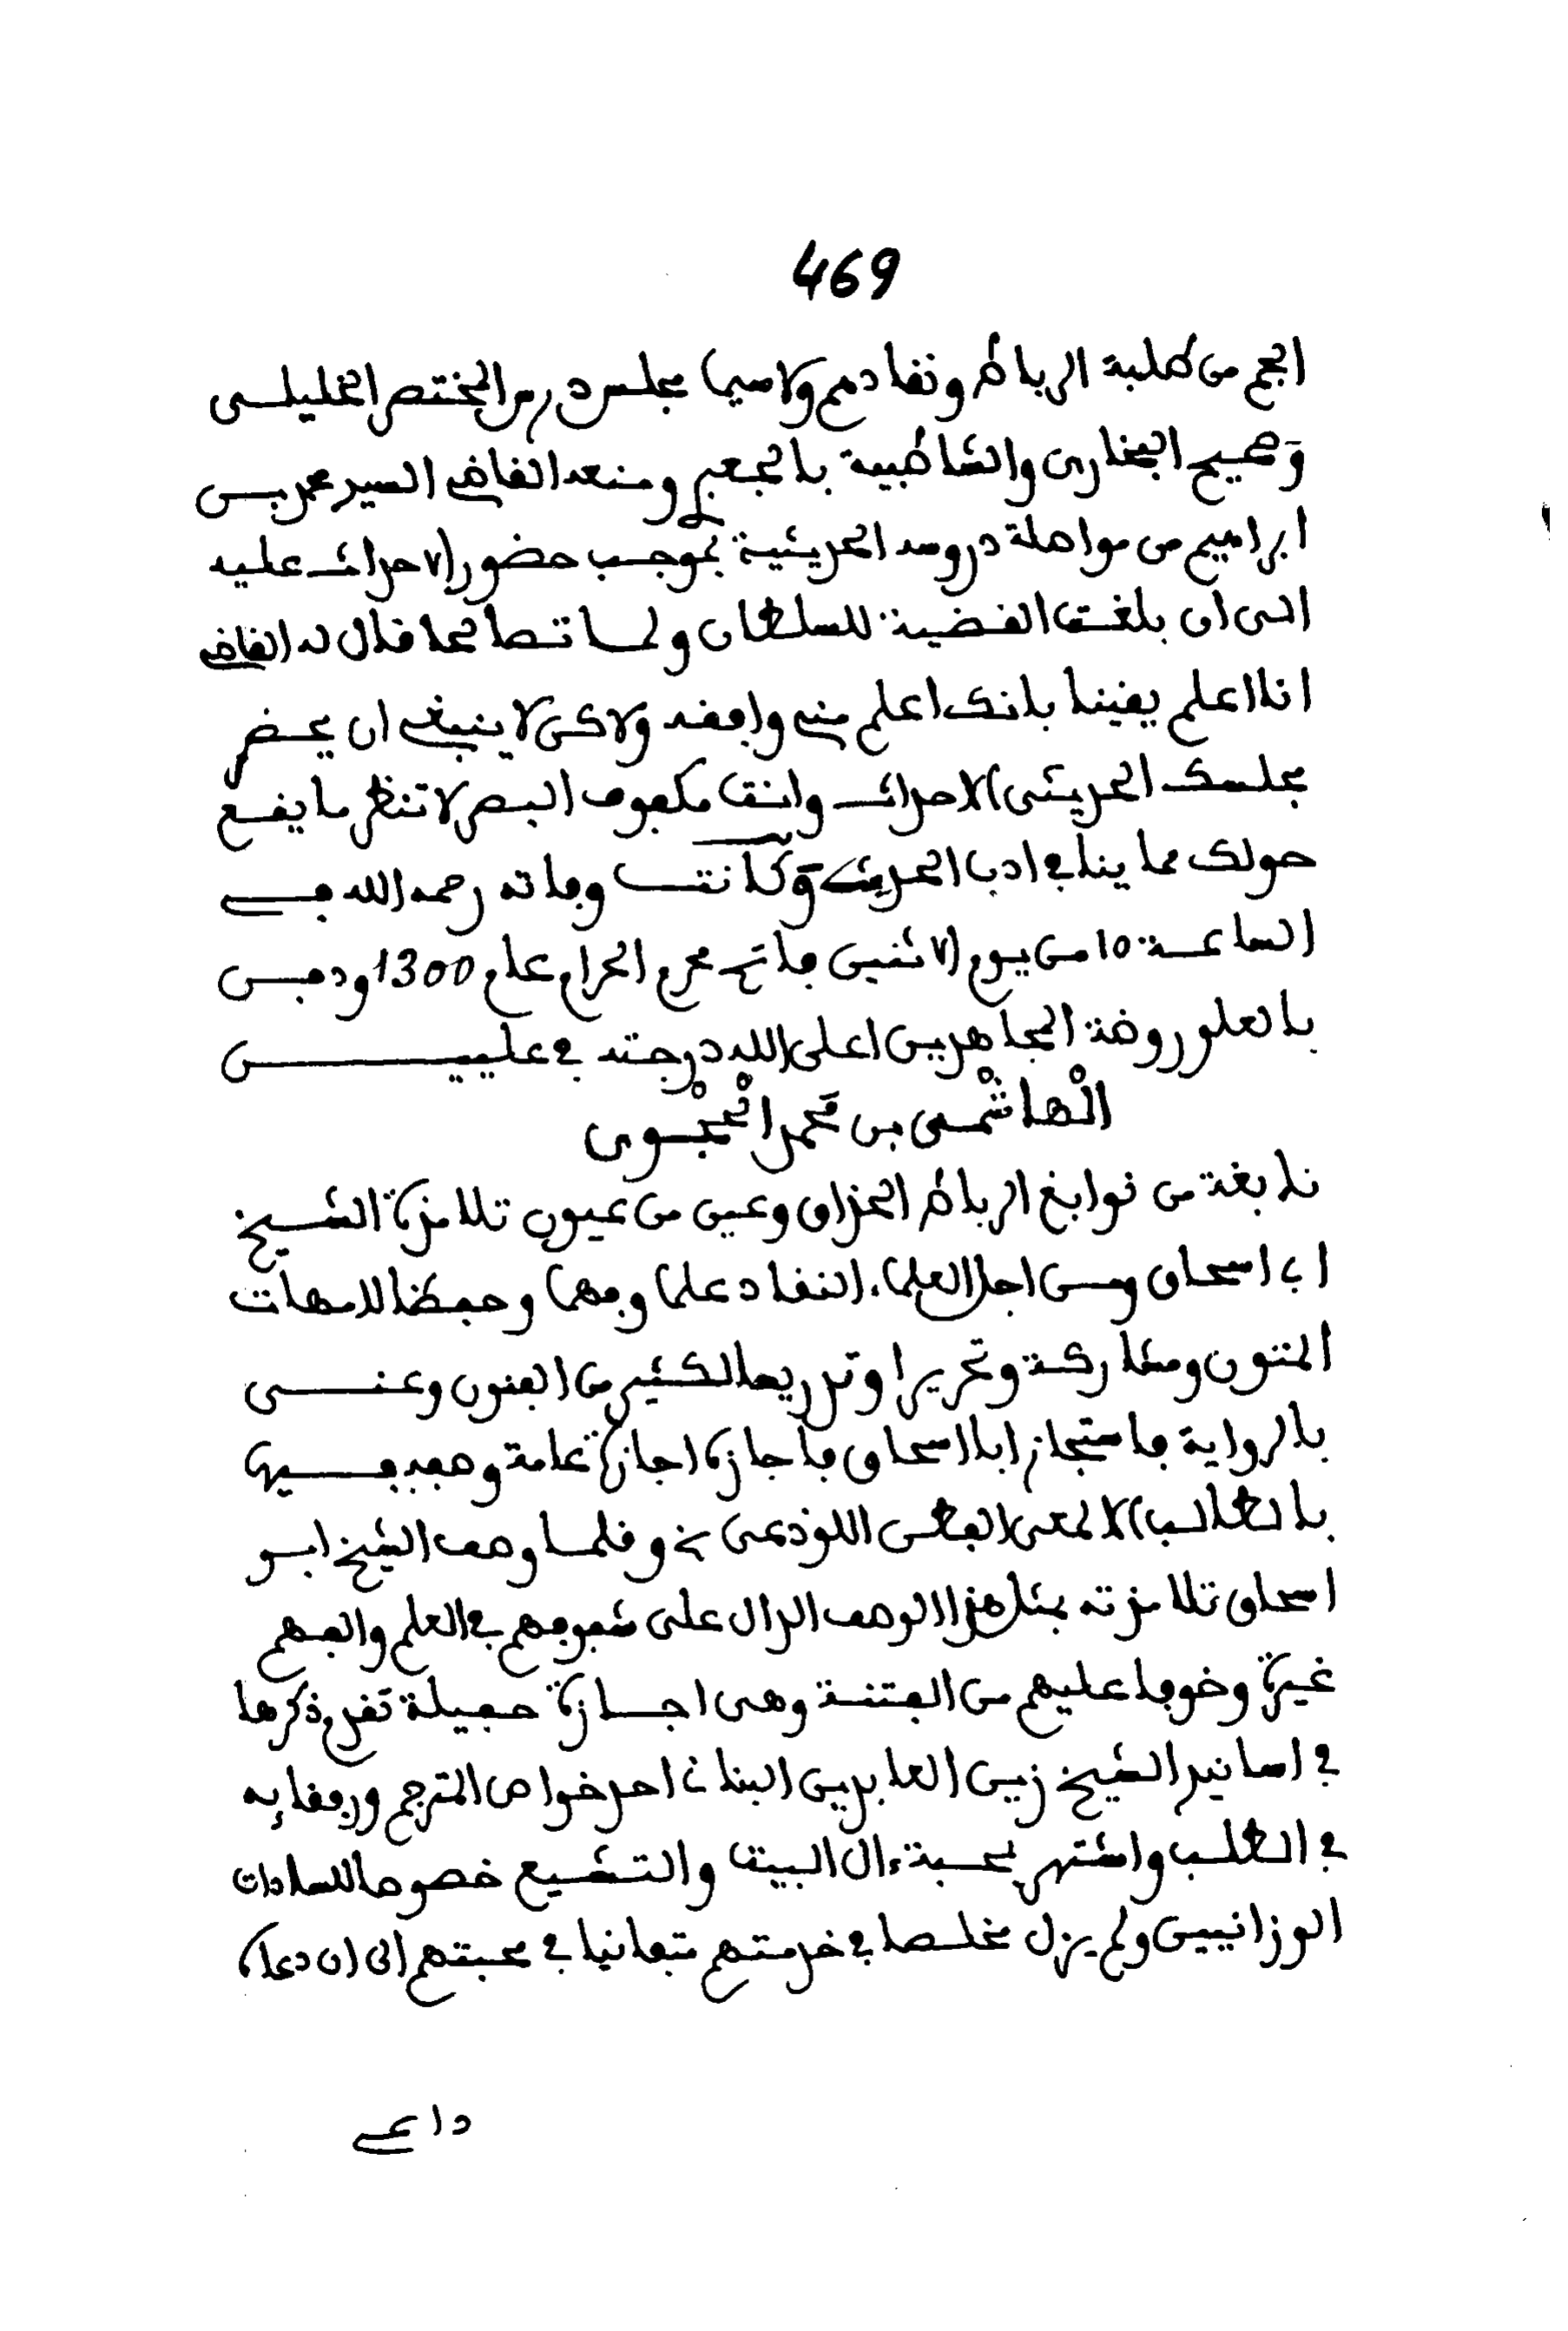 469
الجم من طلبة الرباط ونقادهم ولا سيما مجلس درس المختصر الخليلي
وصحيح البخاري والشاطبية بالجعبري ومنعه القاضي السيد محمد بن
ابراهيم من مواصلة دروسه الحديثية بموجب حضور الاحداث عليه
الى ان بلغت القضية للسلطان ولما تصالحا قال له القاضي
انا اعلم يقينا بانك اعلم مني وافقه ولاكن لا ينبغي ان يحضر
مجلسك الحديثي الاحداث وانت مكفوف البصر لا تنظر ما يقع
حولك مما ينافي ادب الحديث وكانت وفاته رحمه الله في
الساعة 10 من يوم الاثنين فاتح محرم الحرام عام 1300 ودفن
بالعلو روضة المجاهدين اعلى الله درجته في عليين
الْهاشْمي بن مَحمد الْحجْوي
نابغة من نوابغ الرباط الحذاق وعين من عيون تلامذة الشيخ
ابي اسحاق ومن اجل العلماء النقاد علما وفهما وحفظا لامهات
المتون ومشاركة وتحريرا وتدريسا لكثير من الفنون وعنى
بالرواية فاستجاز ابا اسحاق فاجازه اجازة عامة وصفه فيها
بالطالب الالمعي الفطن اللوذعي نخ وقلما وصف الشيخ ابو
اسحاق تلامذته بمثل هذا الوصف الدال على شفوفهم في العلم والفهم
غيرة وخوفا عليهم من الفتنة وهي اجازة حفيلة تقدم ذكرها
في اسانيد الشيخ زين العابدين البناني احد خواص المترجم ورفقايه
في الطلب واشتهر بمحبة ءال البيت والتشيع خصوصا للسادات
الوزانيين ولم يزل مخلصا في خدمتهم متفانيا في محبتهم الى ان دعاه
داعي